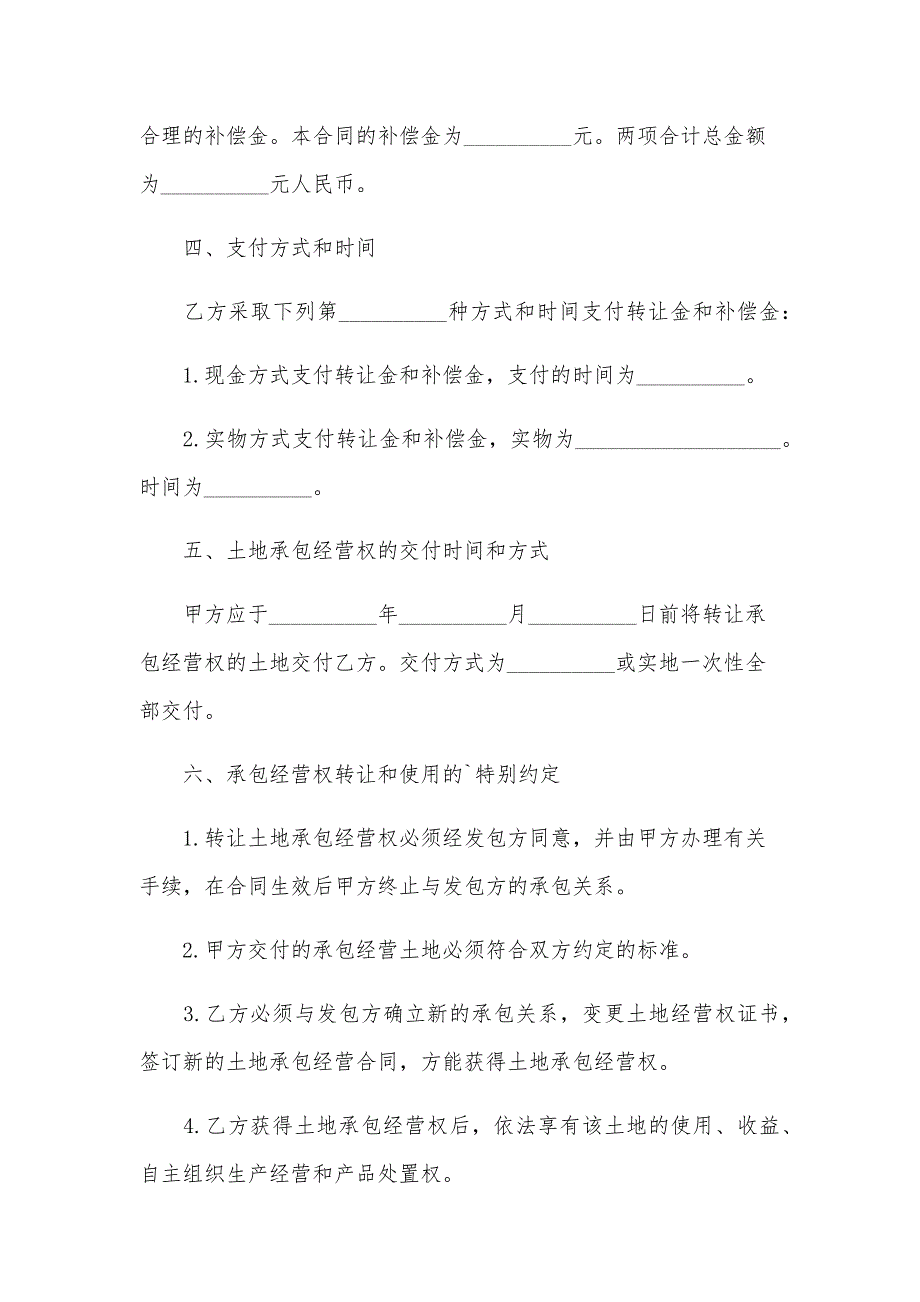 合理的补偿金。本合同的补偿金为__________元。两项合计总金额
为__________元人民币。
四、支付方式和时间
乙方采取下列第__________种方式和时间支付转让金和补偿金：
1.现金方式支付转让金和补偿金，支付的时间为__________。
2.实物方式支付转让金和补偿金，实物为___________________。
时间为__________。
五、土地承包经营权的交付时间和方式
甲方应于__________年__________月__________日前将转让承
包经营权的土地交付乙方。交付方式为__________或实地一次性全
部交付。
六、承包经营权转让和使用的`特别约定
1.转让土地承包经营权必须经发包方同意，并由甲方办理有关
手续，在合同生效后甲方终止与发包方的承包关系。
2.甲方交付的承包经营土地必须符合双方约定的标准。
3.乙方必须与发包方确立新的承包关系，变更土地经营权证书，
签订新的土地承包经营合同，方能获得土地承包经营权。
4.乙方获得土地承包经营权后，依法享有该土地的使用、收益、
自主组织生产经营和产品处置权。